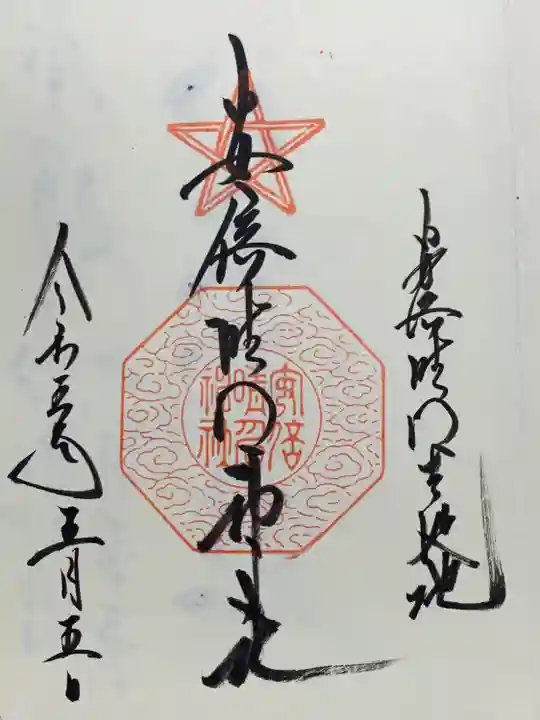 安倍晴明生誕地
安倍晴明神社
安倍
晴明
神社
令和五年三月五日